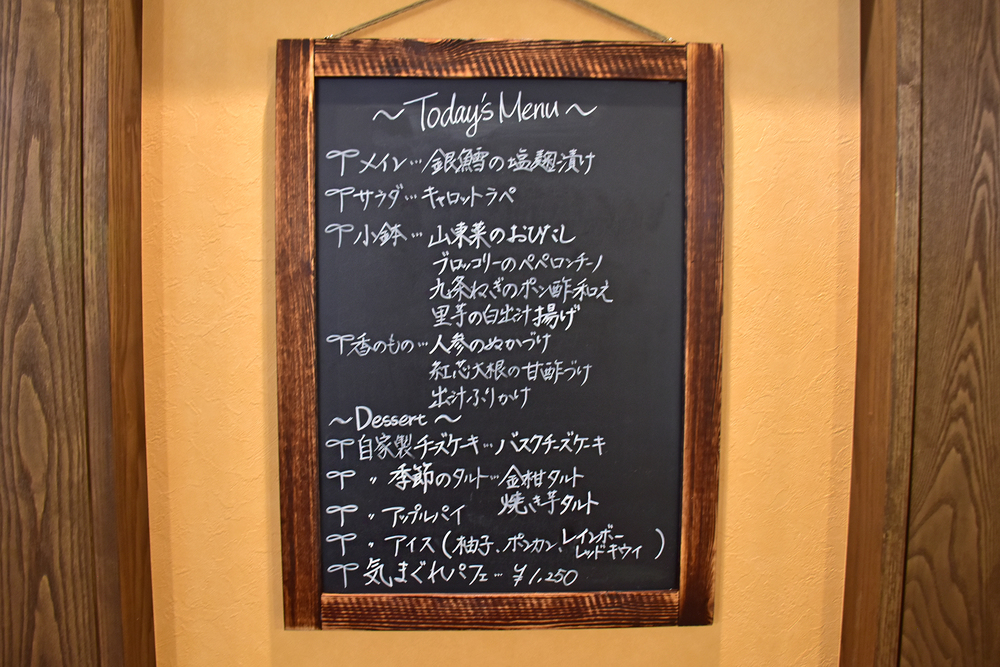 ～Today's Menu～
メイン…銀鱈の塩麹漬け
サラダ…キャロットラペ
小鉢…山東菜のおひたし
ブロッコリーのペペロンチーノ
九条ねぎのポン酢和え
里芋の白出汁揚げ
香のもの…人参のぬかづけ
紅芯大根の甘酢づけ
出汁ふりかけ
～Dessert～
自家製チーズケーキ…バスクチーズケーキ
〃 季節のタルト…金柑タルト
焼き芋タルト
〃 アップルパイ
〃 アイス(柚子、ポンカン、レインボーレッドキウイ)
気まぐれパフェ…¥1,250